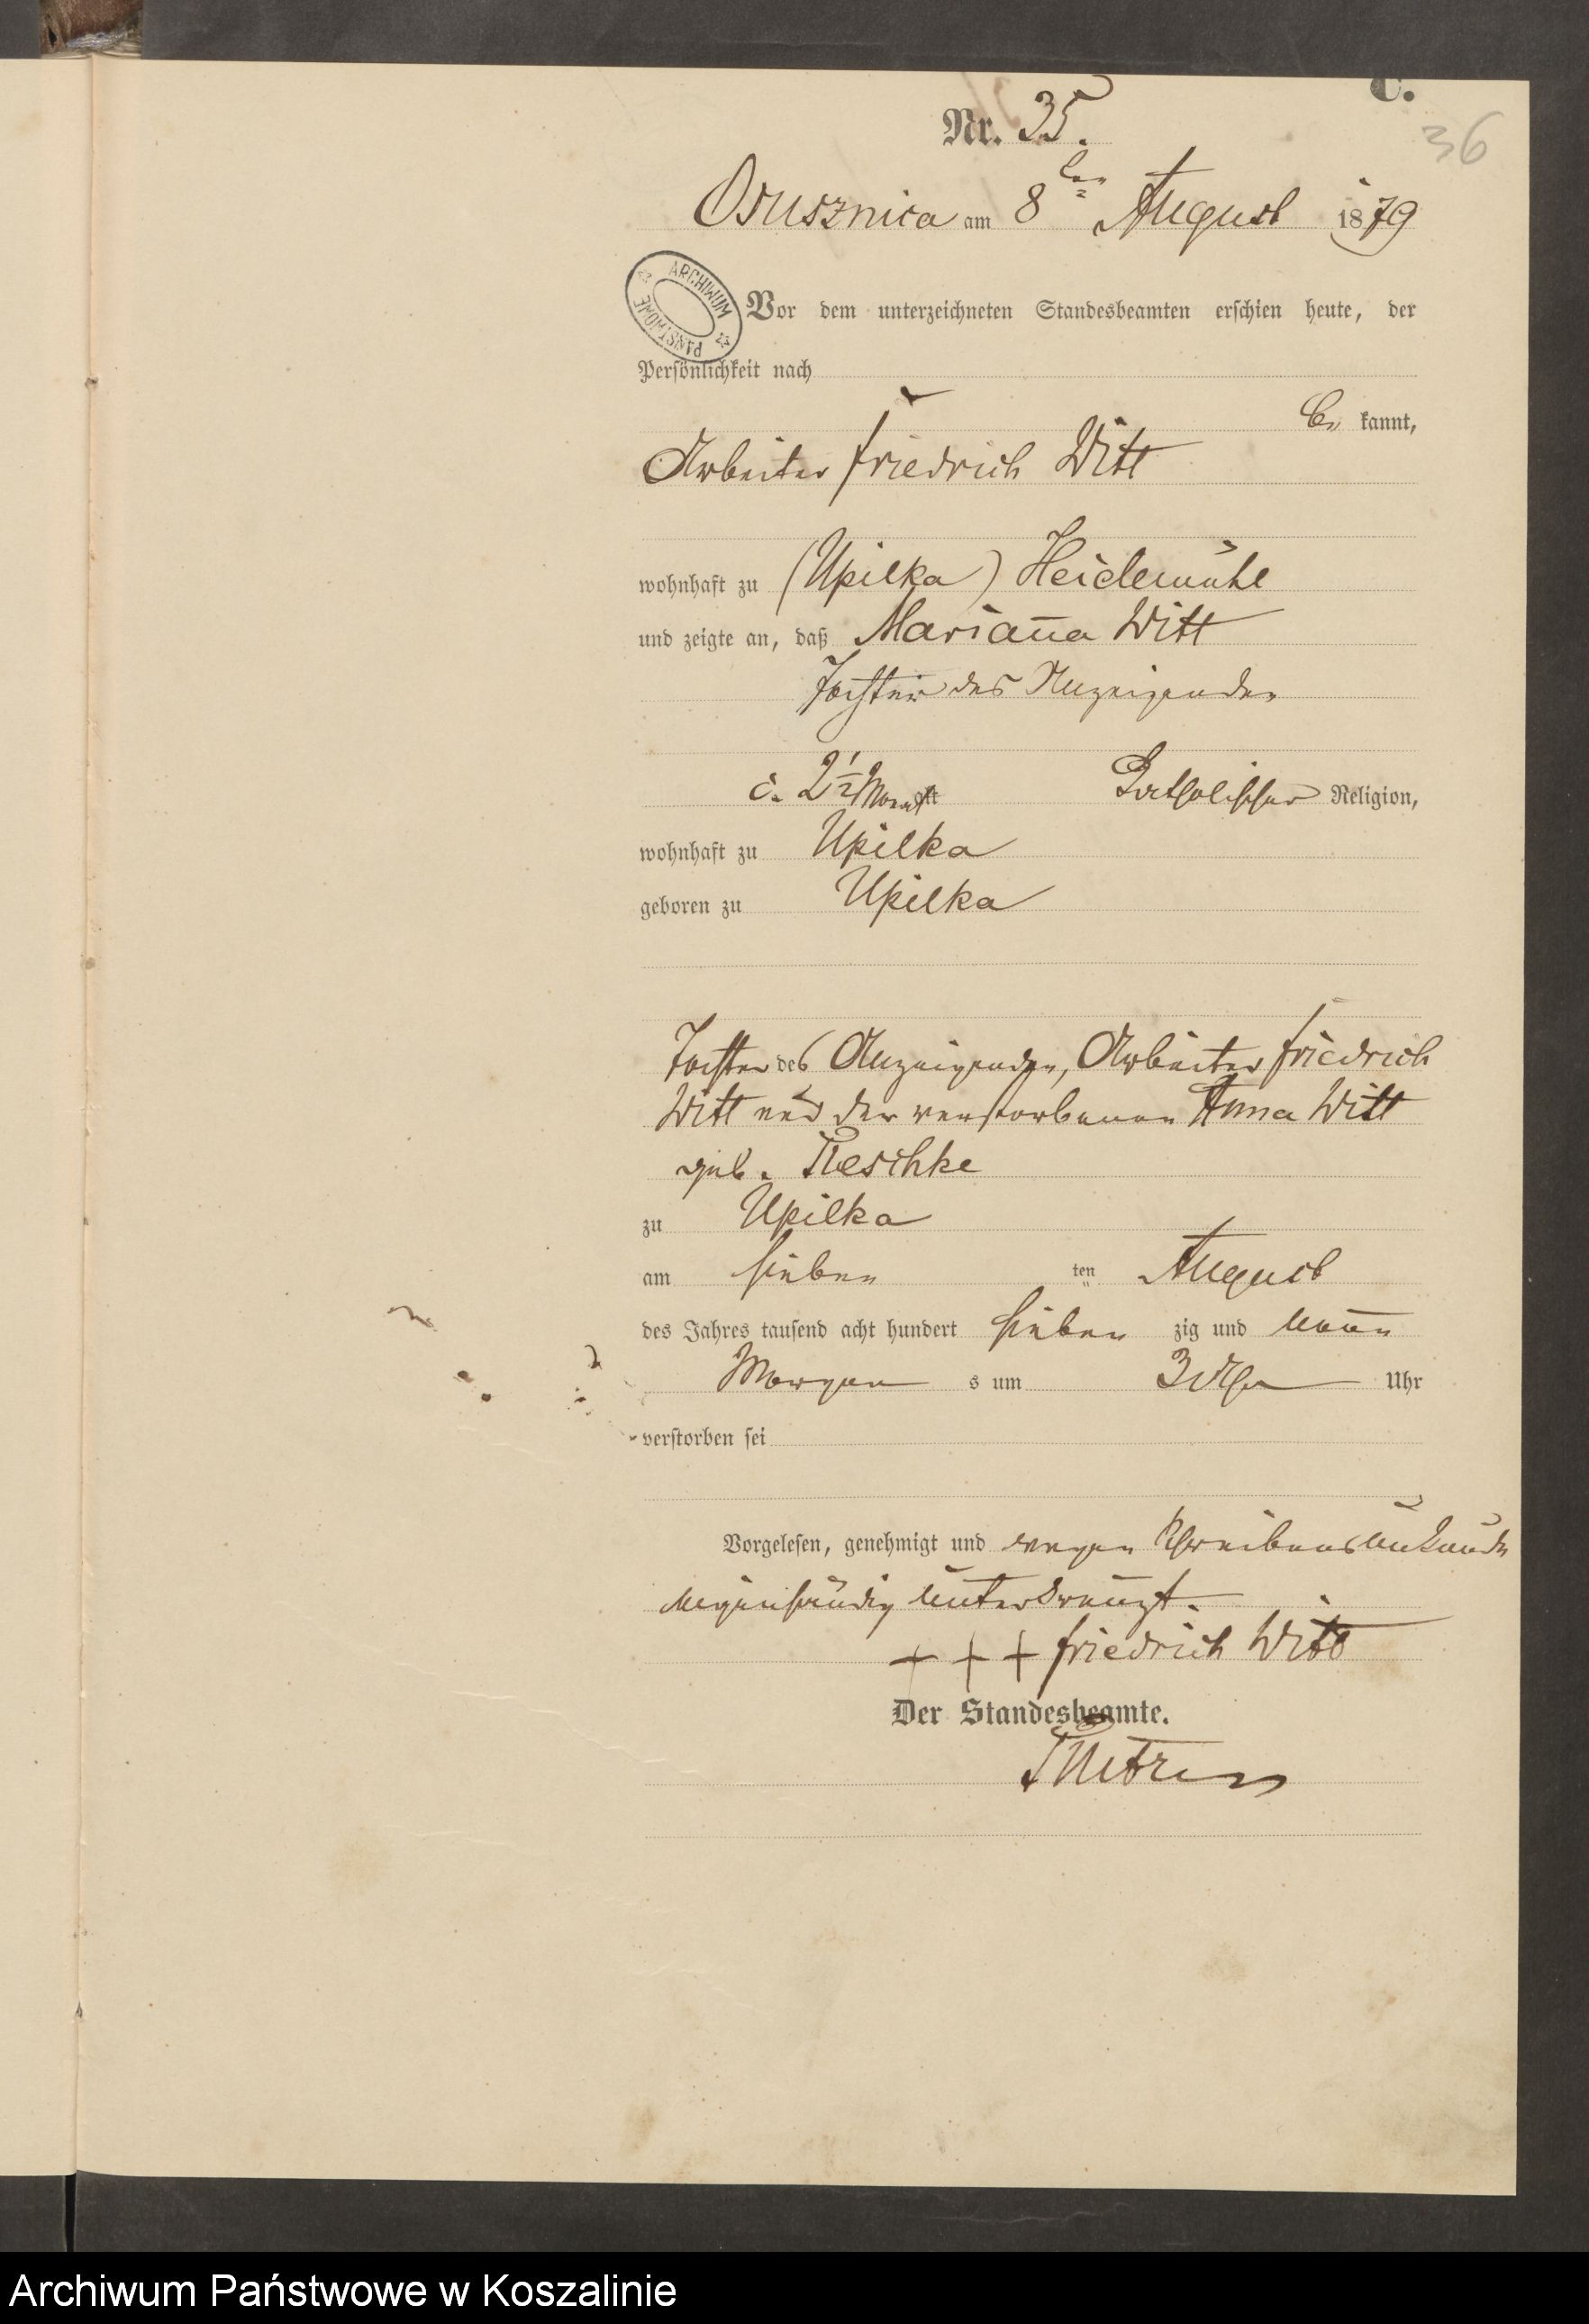 C.
Nr. 35.
36
Osusznica am 8ten August 1879
ARCHIWUM PAŃSTWOWE
Vor dem unterzeichneten Standesbeamten erschien heute, der
Persönlichkeit nach
be kannt,
Arbeiter Friedrich Witt
wohnhaft zu (Upilka) Heidemühl
und zeigte an, daß Marianna Witt
Tochter des Anzeigenden
c. 2 1/2 Monat alt Katholischer Religion,
wohnhaft zu Upilka
geboren zu Upilka
Tochter des Anzeigenden, Arbeiter Friedrich
Witt und der verstorbenen Anna Witt
geb. Reschke
zu Upilka
am sieben ten August
des Jahres tausend acht hundert sieben zig und neun
Morgen s um 3 Uhr Uhr
verstorben sei
Vorgelesen, genehmigt und wegen Schreibensunkunde
eigenhändig unterkreuzt.
+ + + Friedrich Witt
Der Standesbeamte.
Archiwum Państwowe w Koszalinie